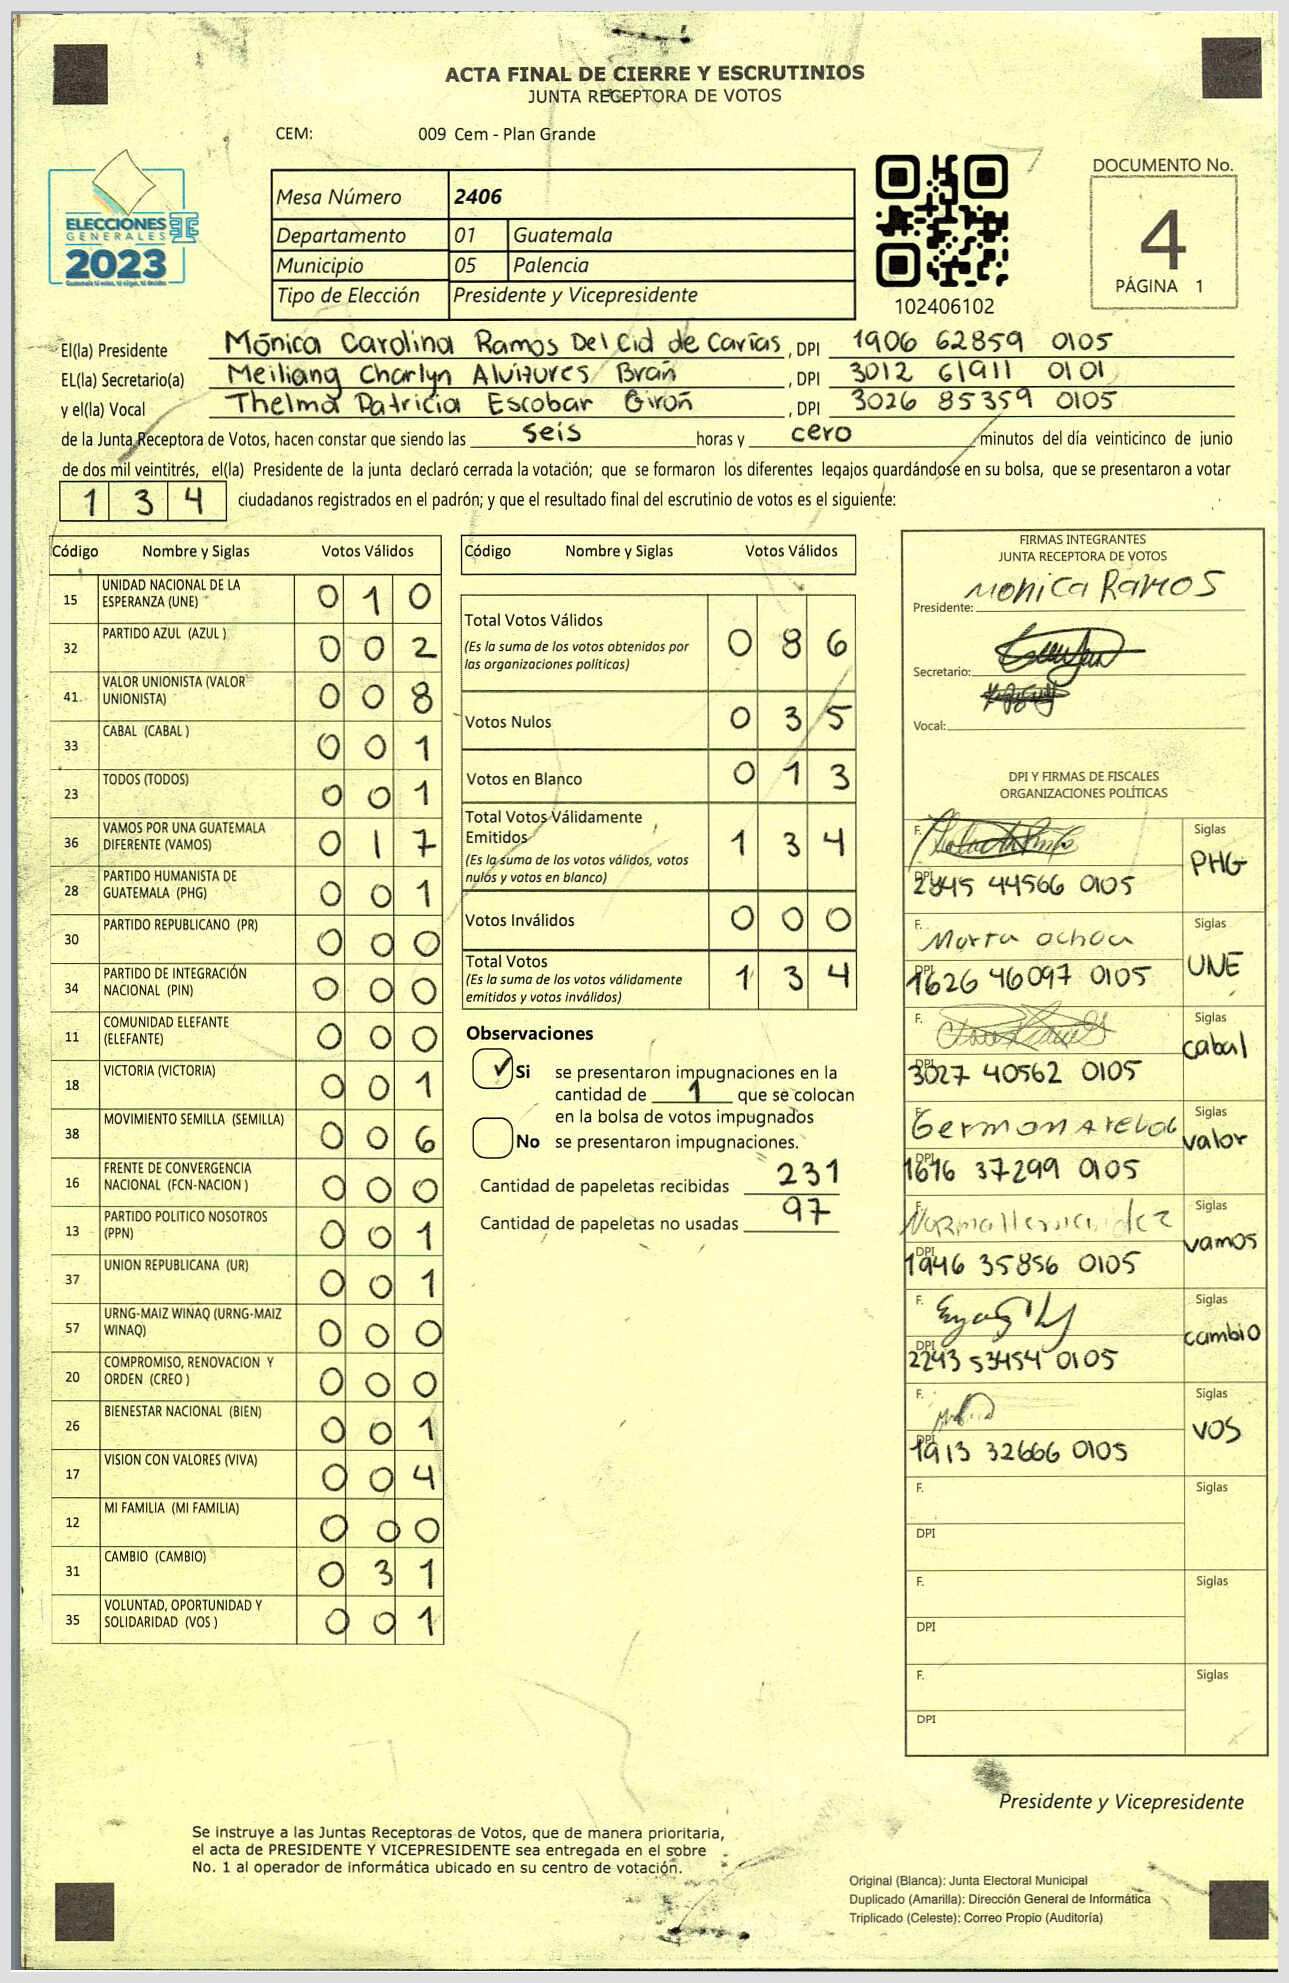 ACTA FINAL DE CIERRE Y ESCRUTINIOS
JUNTA RECEPTORA DE VOTOS
CEM: 009 Cem - Plan Grande
ELECCIONES
GENERALES
2023
Mesa Número 2406
Departamento 01 Guatemala
Municipio 05 Palencia
Tipo de Elección Presidente y Vicepresidente
102406102
DOCUMENTO No.
4
PÁGINA 1
El(la) Presidente Mónica Carolina Ramos Del Cid de Carías, DPI 1906 62859 0105
EL(la) Secretario(a) Meiliang Charlyn Alvizures Brañ, DPI 3012 61911 0101
y el(la) Vocal Thelma Patricia Escobar Giroñ, DPI 3026 85359 0105
de la Junta Receptora de Votos, hacen constar que siendo las seis horas y cero minutos del día veinticinco de junio
de dos mil veintitrés, el(la) Presidente de la junta declaró cerrada la votación; que se formaron los diferentes legajos guardándose en su bolsa, que se presentaron a votar
134 ciudadanos registrados en el padrón; y que el resultado final del escrutinio de votos es el siguiente:
Código Nombre y Siglas Votos Válidos
15 UNIDAD NACIONAL DE LA ESPERANZA (UNE) 0 1 0
32 PARTIDO AZUL (AZUL ) 0 0 2
41 VALOR UNIONISTA (VALOR UNIONISTA) 0 0 8
33 CABAL (CABAL ) 0 0 1
23 TODOS (TODOS) 0 0 1
36 VAMOS POR UNA GUATEMALA DIFERENTE (VAMOS) 0 1 7
28 PARTIDO HUMANISTA DE GUATEMALA (PHG) 0 0 1
30 PARTIDO REPUBLICANO (PR) 0 0 0
34 PARTIDO DE INTEGRACIÓN NACIONAL (PIN) 0 0 0
11 COMUNIDAD ELEFANTE (ELEFANTE) 0 0 0
18 VICTORIA (VICTORIA) 0 0 1
38 MOVIMIENTO SEMILLA (SEMILLA) 0 0 6
16 FRENTE DE CONVERGENCIA NACIONAL (FCN-NACION ) 0 0 0
13 PARTIDO POLITICO NOSOTROS (PPN) 0 0 1
37 UNION REPUBLICANA (UR) 0 0 1
57 URNG-MAIZ WINAQ (URNG-MAIZ WINAQ) 0 0 0
20 COMPROMISO, RENOVACION Y ORDEN (CREO ) 0 0 0
26 BIENESTAR NACIONAL (BIEN) 0 0 1
17 VISION CON VALORES (VIVA) 0 0 4
12 MI FAMILIA (MI FAMILIA) 0 0 0
31 CAMBIO (CAMBIO) 0 3 1
35 VOLUNTAD, OPORTUNIDAD Y SOLIDARIDAD (VOS ) 0 0 1
Código Nombre y Siglas Votos Válidos
Total Votos Válidos 0 8 6
(Es la suma de los votos obtenidos por
las organizaciones politicas)
Votos Nulos 0 3 5
Votos en Blanco 0 1 3
Total Votos Válidamente
Emitidos 1 3 4
(Es la suma de los votos válidos, votos
nulos y votos en blanco)
Votos Inválidos 0 0 0
Total Votos 1 3 4
(Es la suma de los votos válidamente
emitidos y votos inválidos)
Observaciones
✓ Si se presentaron impugnaciones en la
cantidad de 1 que se colocan
en la bolsa de votos impugnados
No se presentaron impugnaciones.
Cantidad de papeletas recibidas 231
Cantidad de papeletas no usadas 97
FIRMAS INTEGRANTES
JUNTA RECEPTORA DE VOTOS
Presidente: Monica Ramos
Secretario:
Vocal:
DPI Y FIRMAS DE FISCALES
ORGANIZACIONES POLÍTICAS
F. Siglas PHG
DPI 2845 44566 0105
F. Marta ochoa Siglas UNE
DPI 1626 46097 0105
F. Siglas cabal
DPI 3027 40562 0105
F. German Siglas valor
DPI 1676 37299 0105
F. Norma Hernandez Siglas vamos
DPI 1946 35856 0105
F. Siglas cambio
DPI 2243 53454 0105
F. Siglas VOS
DPI 1913 32666 0105
F. Siglas
DPI
F. Siglas
DPI
F. Siglas
DPI
Presidente y Vicepresidente
Se instruye a las Juntas Receptoras de Votos, que de manera prioritaria,
el acta de PRESIDENTE Y VICEPRESIDENTE sea entregada en el sobre
No. 1 al operador de informática ubicado en su centro de votación.
Original (Blanca): Junta Electoral Municipal
Duplicado (Amarilla): Dirección General de Informática
Triplicado (Celeste): Correo Propio (Auditoría)